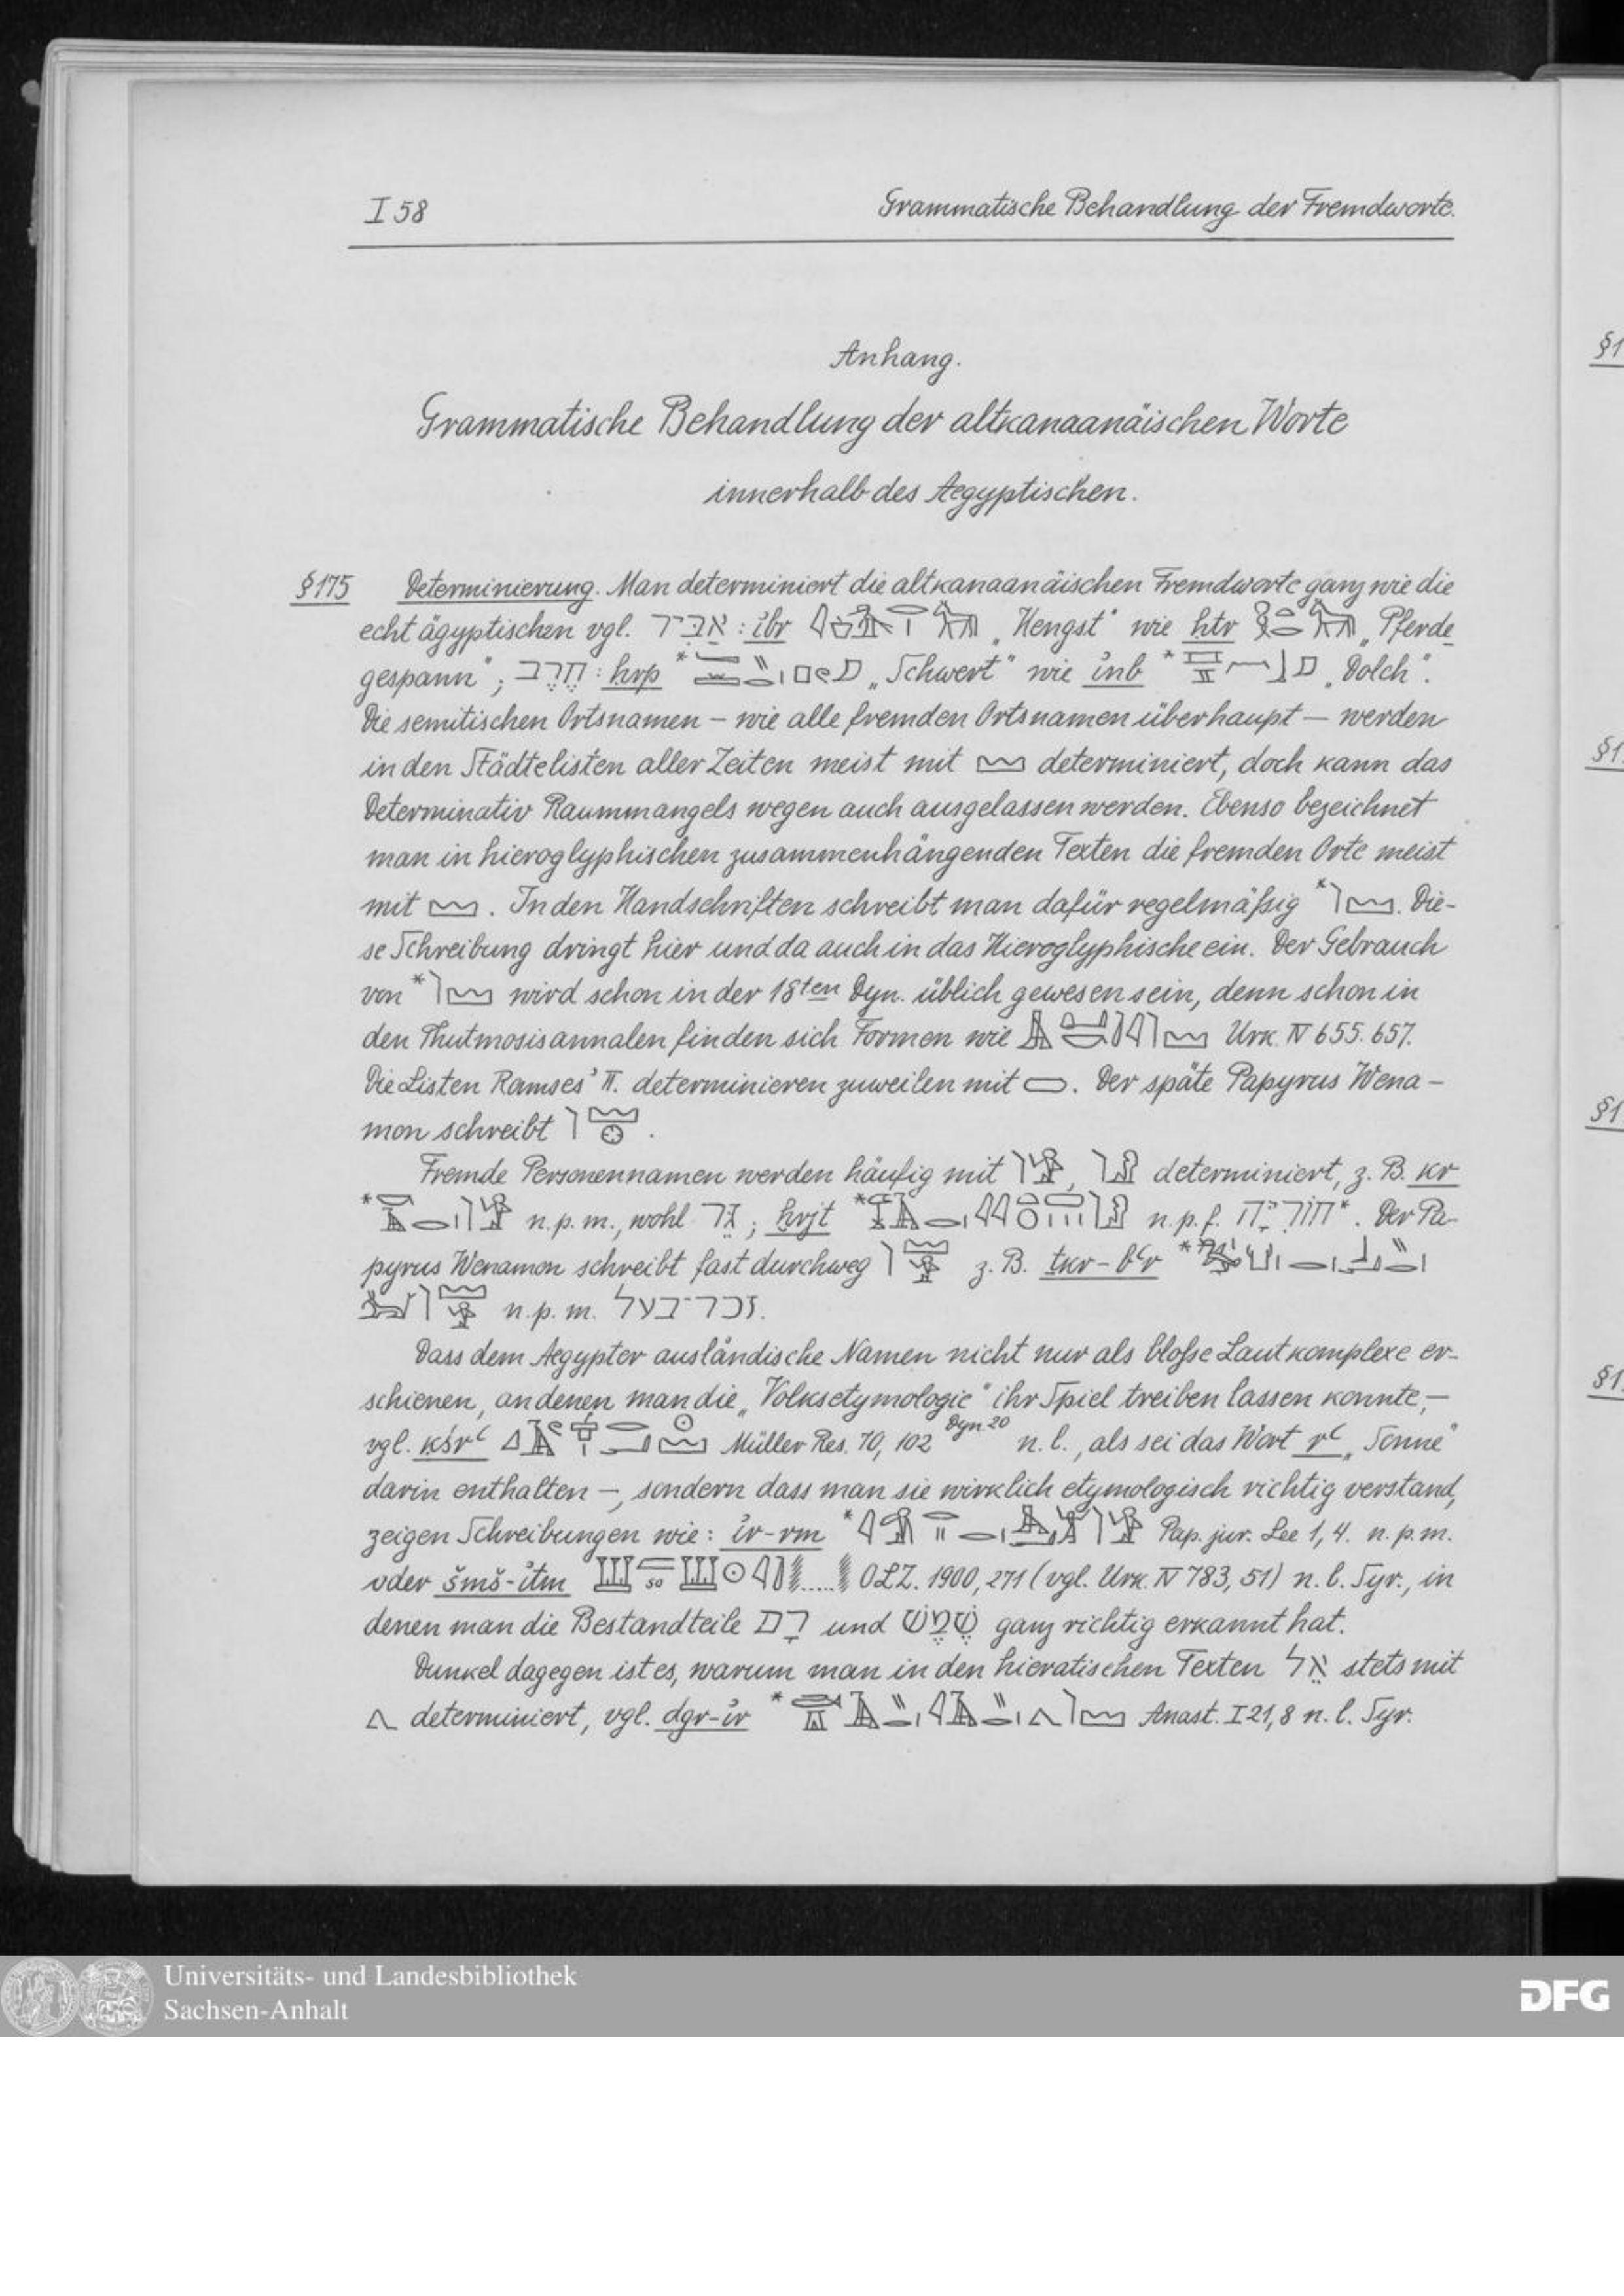 I 58 Grammatische Behandlung der Fremdworte.
Anhang.
Grammatische Behandlung der altkanaanäischen Worte
innerhalb des Aegyptischen.
§175 Determinierung. Man determiniert die altkanaanäischen Fremdworte ganz wie die
echt ägyptischen vgl. אַבִּיר : ỉbr „Hengst" wie ḥtr „Pferde
gespann"; חֶרֶב : ḥrp * „Schwert" wie ỉnb * „Dolch".
Die semitischen Ortsnamen – wie alle fremden Ortsnamen überhaupt – werden
in den Städtelisten aller Zeiten meist mit 𓈉 determiniert, doch kann das
Determinativ Raummangels wegen auch ausgelassen werden. Ebenso bezeichnet
man in hieroglyphischen zusammenhängenden Texten die fremden Orte meist
mit 𓈉. In den Handschriften schreibt man dafür regelmäßig *𓌙𓈉. Die-
se Schreibung dringt hier und da auch in das Hieroglyphische ein. Der Gebrauch
von *𓌙𓈉 wird schon in der 18ten Dyn. üblich gewesen sein, denn schon in
den Thutmosisannalen finden sich Formen wie Urk. IV 655. 657.
Die Listen Ramses' II. determinieren zuweilen mit. Der späte Papyrus Wena-
mon schreibt 𓌙𓈉𓊖.
Fremde Personennamen werden häufig mit determiniert, z. B. kr
* n. p. m., wohl גֵּר; ḫrjt * n. p. f. *. Der Pa-
pyrus Wenamon schreibt fast durchweg z. B. tkr-bʿr *
n. p. m. זכר־בעל.
Dass dem Aegypter ausländische Namen nicht nur als bloße Lautkomplexe er-
schienen, an denen man die „Volksetymologie" ihr Spiel treiben lassen konnte, –
vgl. kśrʿ Müller Res. 70, 102 Dyn. 20 n. l., als sei das Wort rʿ „Sonne"
darin enthalten –, sondern dass man sie wirklich etymologisch richtig verstand,
zeigen Schreibungen wie: ỉr-rm * Pap. jur. Lee 1, 4. n. p. m.
oder šmš-ỉtm ..... OLZ. 1900, 271 (vgl. Urk. IV 783, 51) n. l. Syr., in
denen man die Bestandteile רָם und שֶׁמֶשׁ ganz richtig erkannt hat.
Dunkel dagegen ist es, warum man in den hieratischen Texten אֵל stets mit
𓂻 determiniert, vgl. dgr-ỉr * Anast. I 21, 8 n. l. Syr.
§1
§1
§1
§1
Universitäts- und Landesbibliothek
Sachsen-Anhalt
DFG